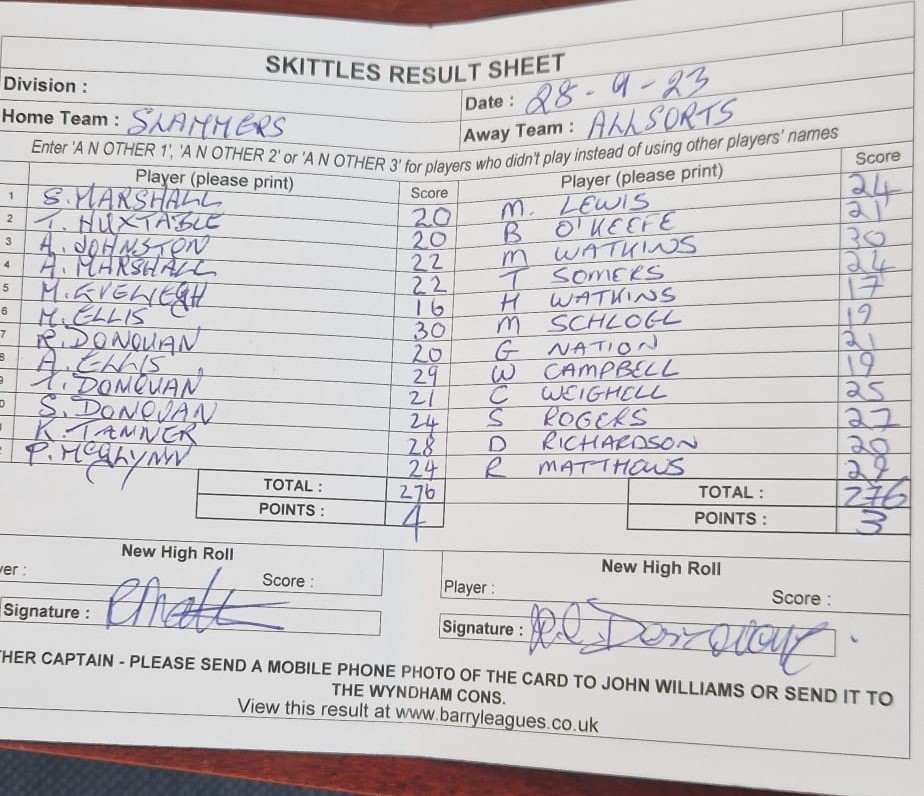 SKITTLES RESULT SHEET
Division :
Date : 28-9-23
Home Team : SLAMMERS
Away Team : ALLSORTS
Enter 'A N OTHER 1', 'A N OTHER 2' or 'A N OTHER 3' for players who didn't play instead of using other players' names
Player (please print) Score Player (please print) Score
1 S. MARSHALL 20 M. LEWIS 24
2 T. HUXTABLE 20 B O'KEEFE 21
3 A. JOHNSTON 22 M WATKINS 30
4 A. MARSHALL 22 T SOMERS 24
5 M. EVELEIGH 16 H WATKINS 17
6 M. ELLIS 30 M SCHLOGL 19
7 R. DONOVAN 20 G NATION 21
8 A. ELLIS 29 W CAMPBELL 19
T. DONOVAN 21 C WEIGHELL 25
0 S. DONOVAN 24 S ROGERS 27
K. TANNER 28 D RICHARDSON 20
P. McGLYNN 24 R MATTHOWS 29
TOTAL : 276 TOTAL : 276
POINTS : 4 POINTS : 3
New High Roll New High Roll
yer : Score : Player : Score :
Signature : Signature :
THER CAPTAIN - PLEASE SEND A MOBILE PHONE PHOTO OF THE CARD TO JOHN WILLIAMS OR SEND IT TO
THE WYNDHAM CONS.
View this result at www.barryleagues.co.uk